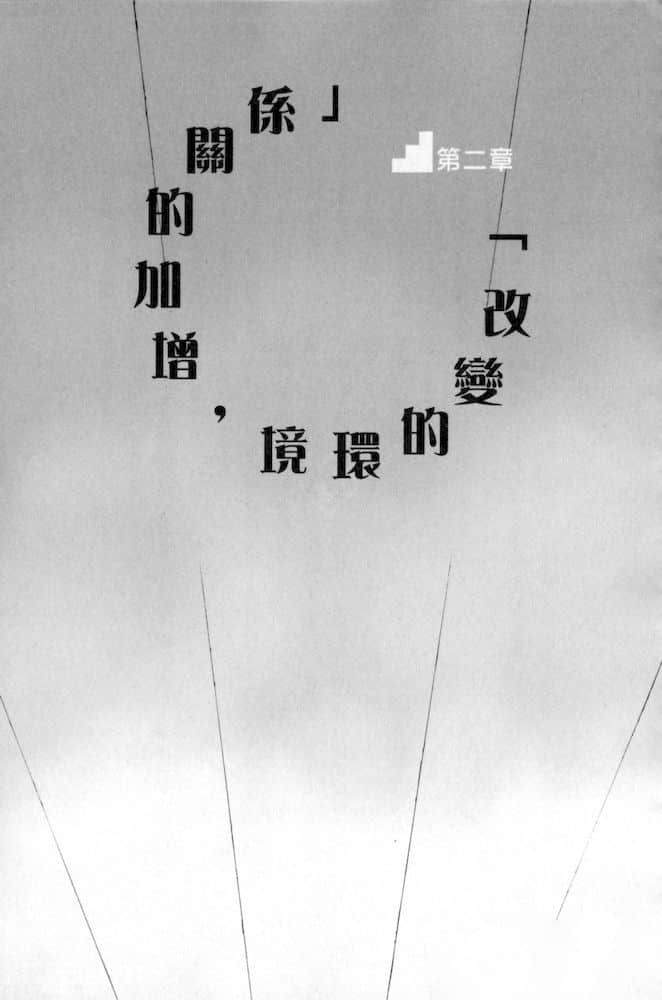 第二章
「改變的環境，增加的關係」